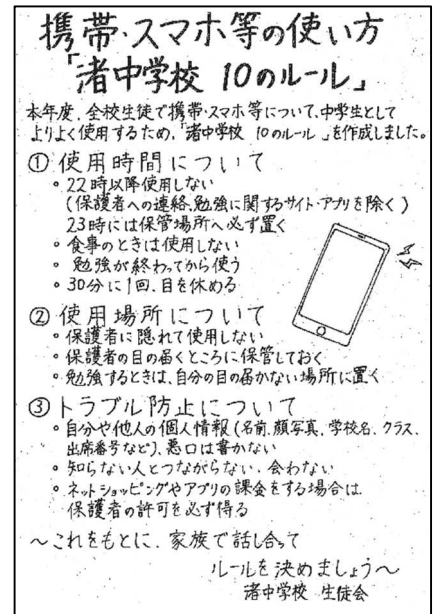 携帯・スマホ等の使い方
「渚中学校 10のルール」
本年度、全校生徒で携帯・スマホ等について、中学生として
よりよく使用するため、「渚中学校 10のルール」を作成しました。
① 使用時間について
◦ 22時以降使用しない
(保護者への連絡、勉強に関するサイト・アプリを除く)
23時には保管場所へ必ず置く
◦ 食事のときは使用しない
◦ 勉強が終わってから使う
◦ 30分に1回、目を休める
② 使用場所について
◦ 保護者に隠れて使用しない
◦ 保護者の目の届くところに保管しておく
◦ 勉強するときは、自分の目の届かない場所に置く
③ トラブル防止について
◦ 自分や他人の個人情報(名前、顔写真、学校名、クラス、
出席番号など)、悪口は書かない
◦ 知らない人とつながらない、会わない
◦ ネットショッピングやアプリの課金をする場合は、
保護者の許可を必ず得る
～これをもとに、家族で話し合って
ルールを決めましょう～
渚中学校 生徒会